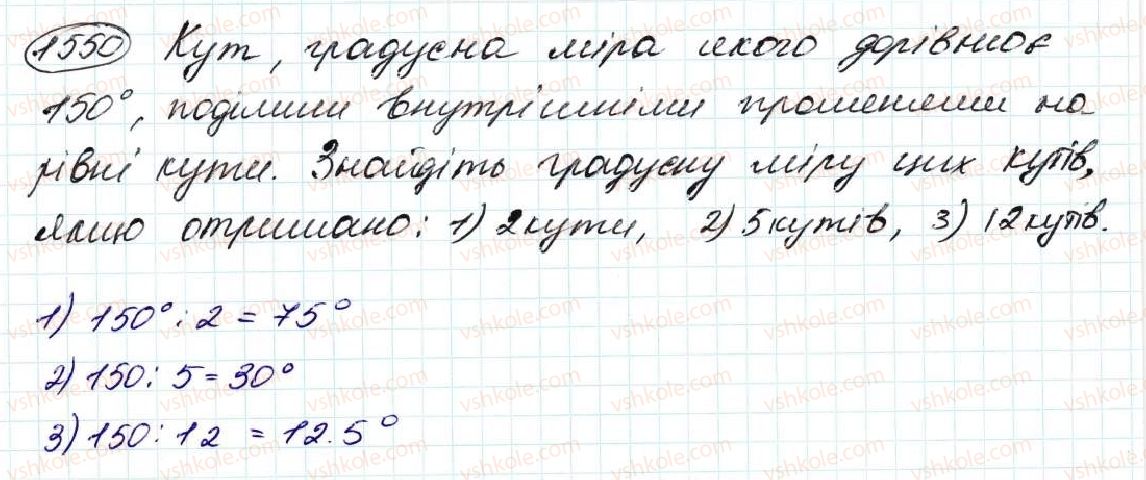 1550 Кут, градусна міра якого дорівнює
150°, поділили внутрішніми променями на
рівні кути. Знайдіть градусну міру цих кутів,
якщо отримано: 1) 2 кути, 2) 5 кутів, 3) 12 кутів.
1) 150° : 2 = 75°
2) 150 : 5 = 30°
3) 150 : 12 = 12.5°